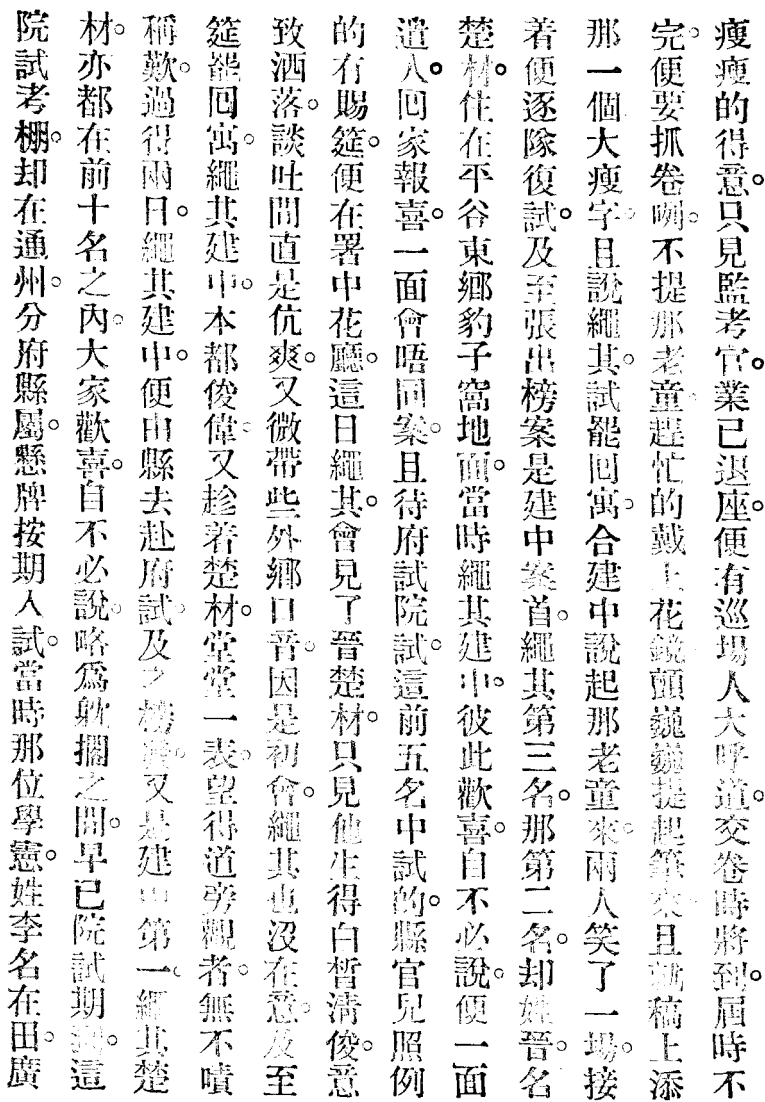 瘦瘦的得意。只見監考官。業已退座。便有巡場人大呼道。交卷時將到。屆時不
完。便要抓卷咧。不提那老童。趕忙的戴上花鏡。顫巍巍提起筆來。且就稿上添
那一個大瘦字。且說繩其。試罷回寓。合建中說起那老童來。兩人笑了一場。接
着便逐隊復試。及至張出榜案。是建中案首。繩其第三名。那第二名。却姓晉。名
楚材。住在平谷東鄉豹子窩地面。當時繩其建中。彼此歡喜。自不必說。便一面
遣人回家報喜。一面會唔同案。且待府試院試。這前五名中試的。縣官兒照例
的有賜筵。便在署中花廳。這日繩其。會見了晉楚材。只見他生得白皙清俊。意
致洒落。談吐間直是伉爽。又微帶些外鄉口音。因是初會。繩其也沒在意。及至
筵罷回寓。繩其建中。本都俊偉。又趁着楚材。堂堂一表。望得道旁觀者。無不嘖
稱歎。過得兩日。繩其建中。便由縣去赴府試。及之榜發。又是建中第一。繩其楚
材。亦都在前十名之內。大家歡喜。自不必說。略爲耽擱之間。早已院試期到。這
院試考棚。却在通州。分府縣屬。懸牌按期入試。當時那位學憲。姓李名在田。廣